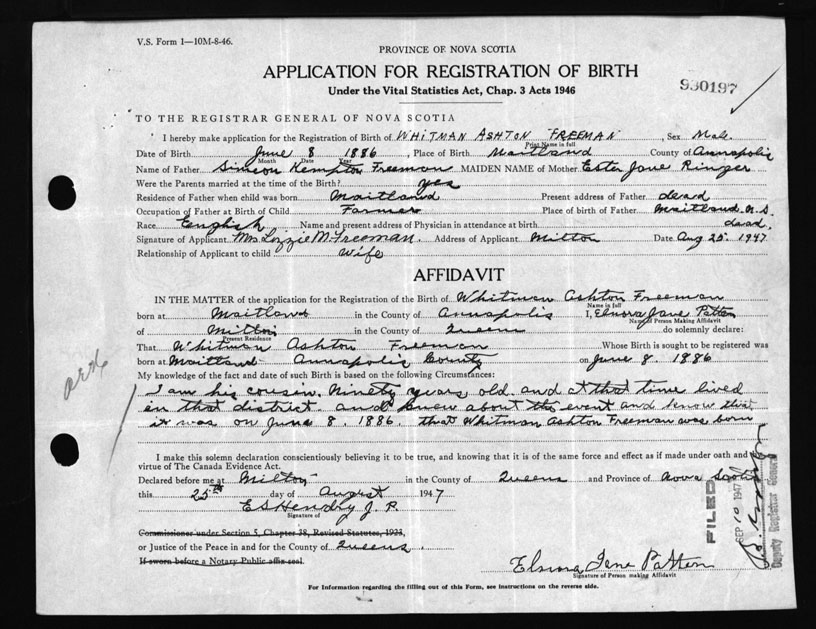 V.S. Form 1—10M-8-46.
PROVINCE OF NOVA SCOTIA
APPLICATION FOR REGISTRATION OF BIRTH
930197
Under the Vital Statistics Act, Chap. 3 Acts 1946
TO THE REGISTRAR GENERAL OF NOVA SCOTIA
I hereby make application for the Registration of Birth of WHITMAN ASHTON FREEMAN, Sex Male
Print Name in full
Date of Birth June 8 1886, Place of Birth Maitland County of Annapolis
Month Date Year
Name of Father Simeon Kempton Freeman MAIDEN NAME of Mother Ester Jane Ringer
Were the Parents married at the time of the Birth? yes
Residence of Father when child was born Maitland Present address of Father dead
Occupation of Father at Birth of Child Farmer Place of birth of Father Maitland N.S.
Race English Name and present address of Physician in attendance at birth dead.
Signature of Applicant Mrs Lizzie M. Freeman. Address of Applicant Milton Date Aug 25. 1947
Relationship of Applicant to child Wife
AFFIDAVIT
IN THE MATTER of the application for the Registration of the Birth of Whitman Ashton Freeman
Name in full
born at Maitland in the County of Annapolis I, Elnora Jane Patten
Name of Person Making Affidavit
of Milton in the County of Queens do solemnly declare:
Present Residence
That Whitman Ashton Freeman Whose Birth is sought to be registered was
born at Maitland Annapolis County on June 8. 1886
My knowledge of the fact and date of such Birth is based on the following Circumstances:
I am his cousin. Ninety years old and at that time lived
in that district. and knew about the event and know that
it was on June 8. 1886. that Whitman Ashton Freeman was born
I make this solemn declaration conscientiously believing it to be true, and knowing that it is of the same force and effect as if made under oath and by
virtue of The Canada Evidence Act.
Declared before me at Milton in the County of Queens and Province of Nova Scotia
this 25th day of August 1947
E S Hendry J. P.
Signature of
Commissioner under Section 5, Chapter 38, Revised Statutes, 1923,
or Justice of the Peace in and for the County of Queens.
If sworn before a Notary Public affix seal.
Elnora Jane Patten
Signature of Person making Affidavit
FILED
SEP 10 1947
Deputy Registrar General
For Information regarding the filling out of this Form, see instructions on the reverse side.